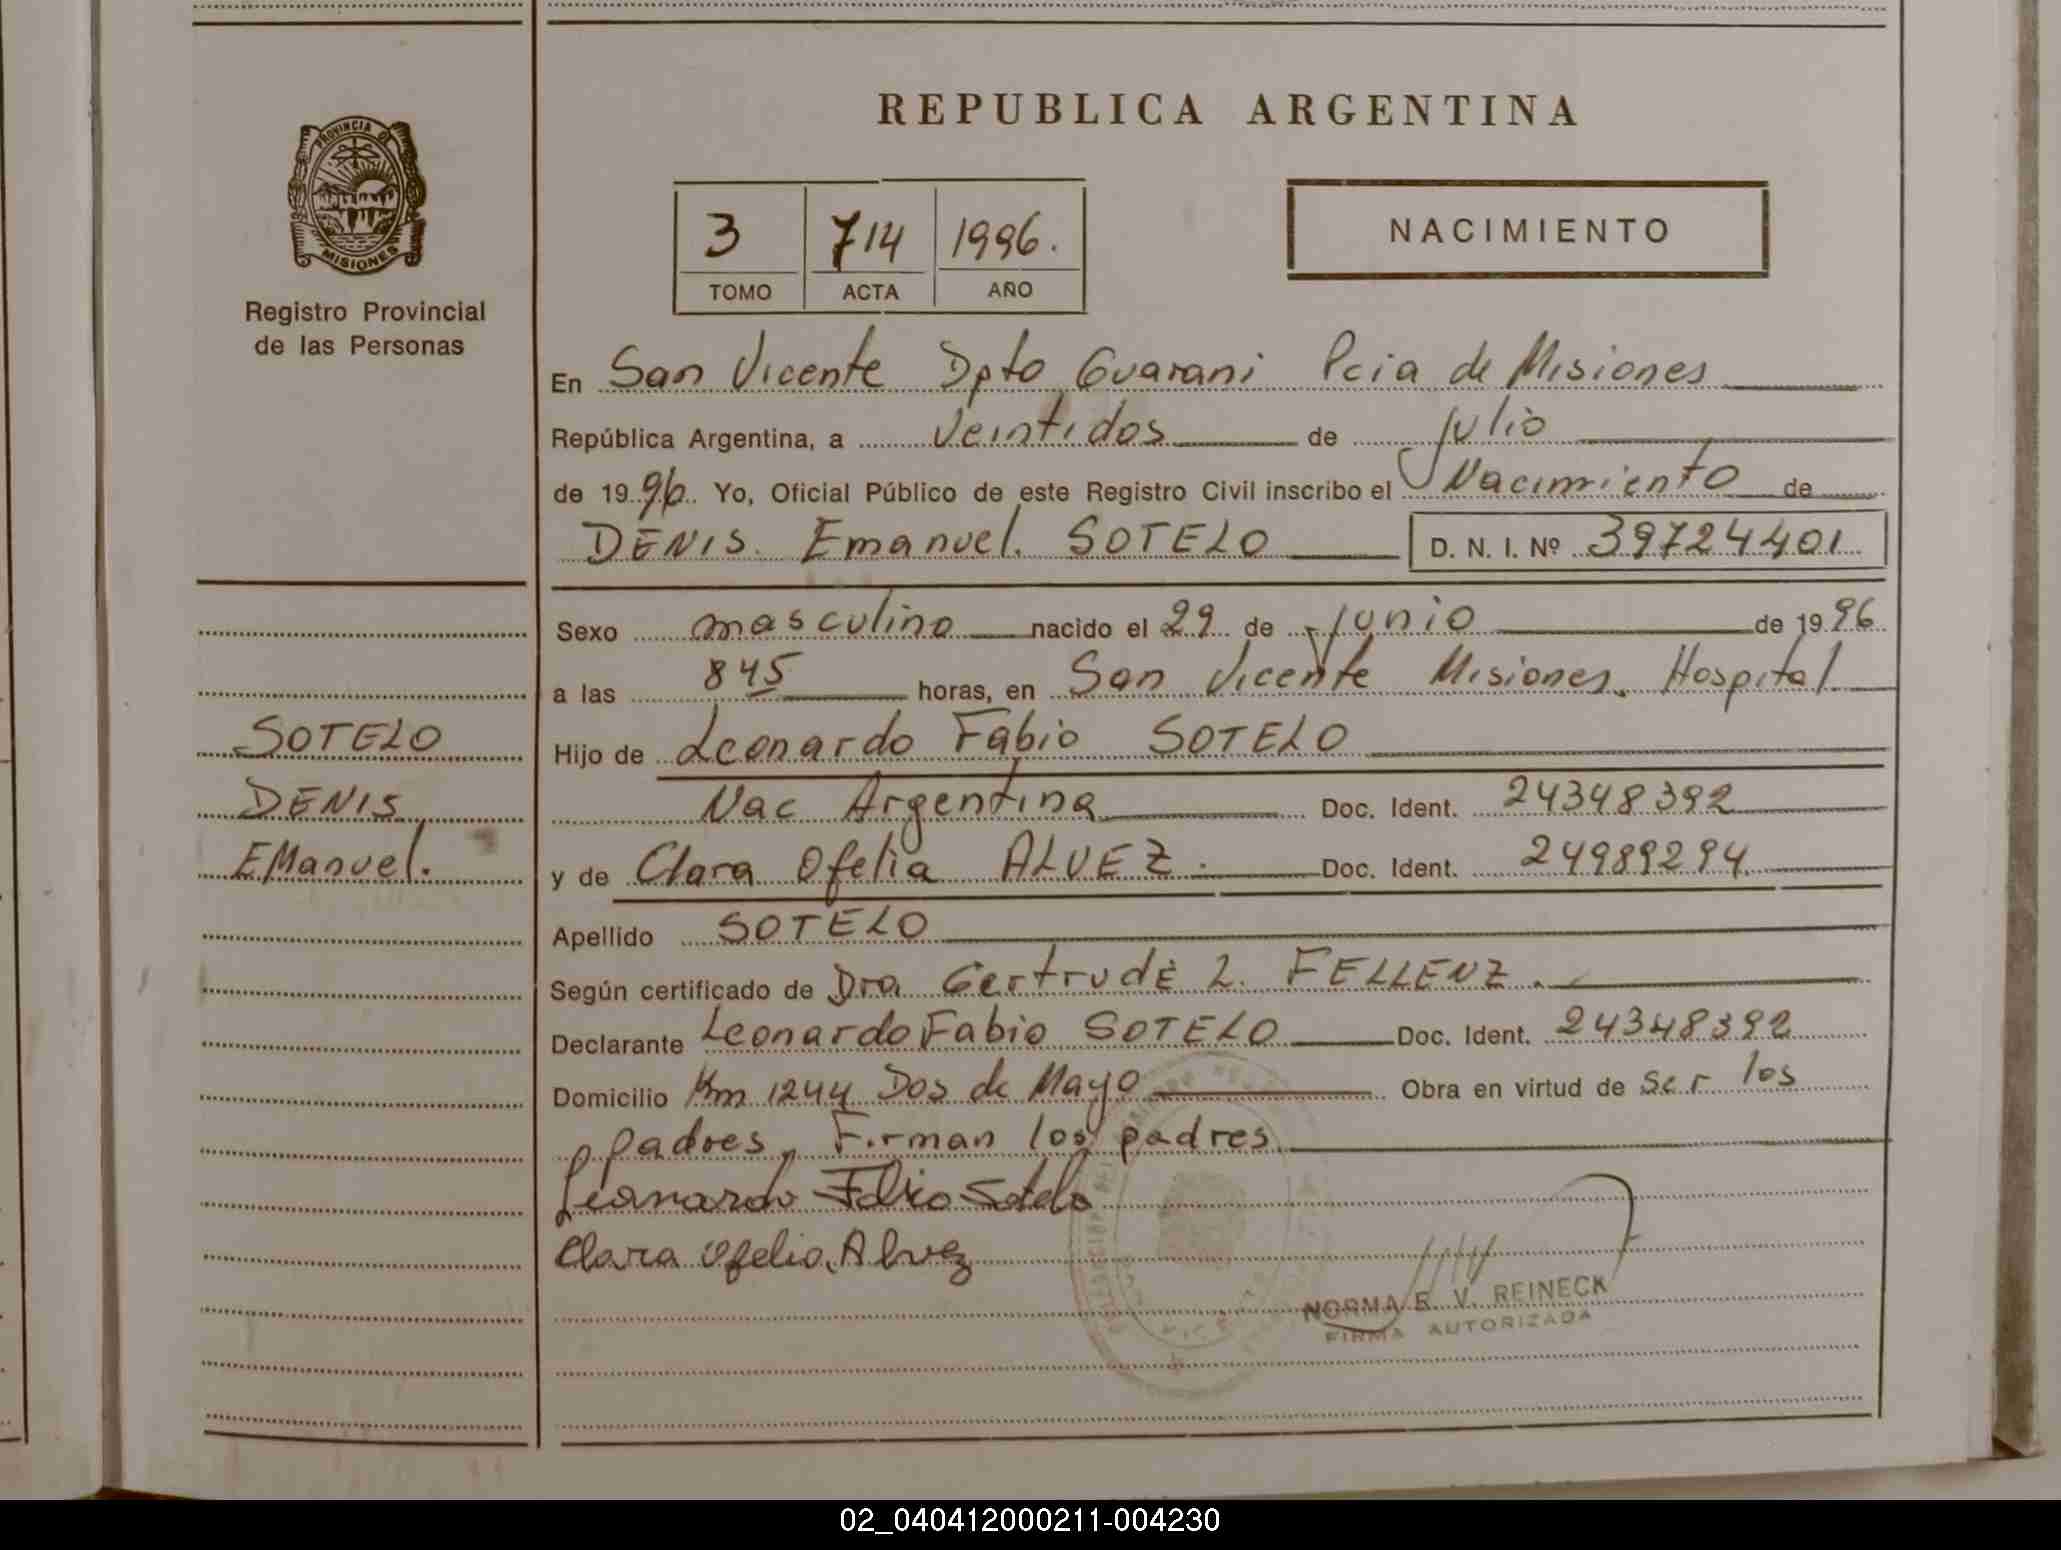 REPUBLICA ARGENTINA
PROVINCIA D
MISIONES
Registro Provincial
de las Personas
3 714 1996.
TOMO ACTA AÑO
NACIMIENTO
En San Vicente Dpto Guarani Pcia de Misiones
República Argentina, a veintidos de julio
de 1996. Yo, Oficial Público de este Registro Civil inscribo el Nacimiento de
DENIS. Emanuel. SOTELO D. N. I. Nº 39724401
Sexo masculino nacido el 29 de junio de 1996
a las 845 horas, en San Vicente Misiones. Hospital
Hijo de Leonardo Fabio SOTELO
Nac Argentina Doc. Ident. 24348392
y de Clara Ofelia ALVEZ. Doc. Ident. 24989294
Apellido SOTELO
Según certificado de Dra Gertrude L. FELLENZ.
Declarante Leonardo Fabio SOTELO Doc. Ident. 24348392
Domicilio Km 1244 Dos de Mayo Obra en virtud de ser los
padres, Firman los padres
Leonardo Fabio Sotelo
Clara Ofelia Alvez
NORMA E. V. REINECK
FIRMA AUTORIZADA
SOTELO
DENIS
EManuel.
02_040412000211-004230